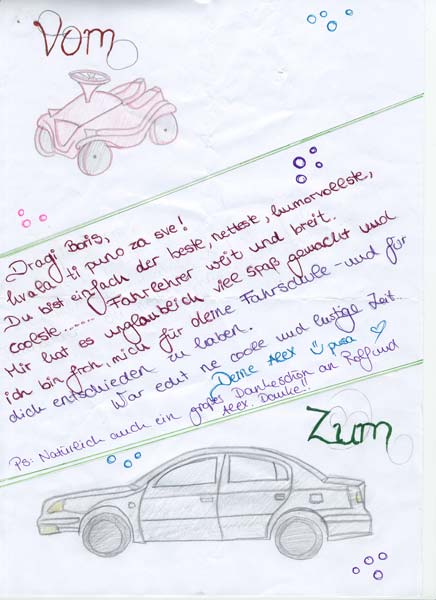 Vom
Dragi Boris,
hvala ti puno za sve!
Du bist einfach der beste, netteste, humorvollste,
coolste...... Fahrlehrer weit und breit.
Mir hat es unglaublich viel Spaß gemacht und
ich bin froh, mich für deine Fahrschule - und für
dich entschieden zu haben.
War echt ne coole und lustige Zeit...
Deine Alex pusa
Ps: Natürlich auch ein großes Dankeschön an Rolf und
Alex. Danke!!
Zum